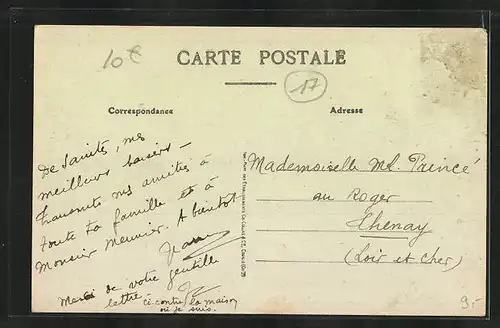 10€
CARTE POSTALE
17
Correspondance
Adresse
De Saintes, mes
meilleurs baisers -
transmets mes amitiés à
toute ta famille et à
Monsieur Meunier. A bientôt
Merci de votre gentille
lettre
ci contre la maison
où je suis.
Mademoiselle ML. Prince
au Roger
Thenay
(Loir et Cher)
9.-